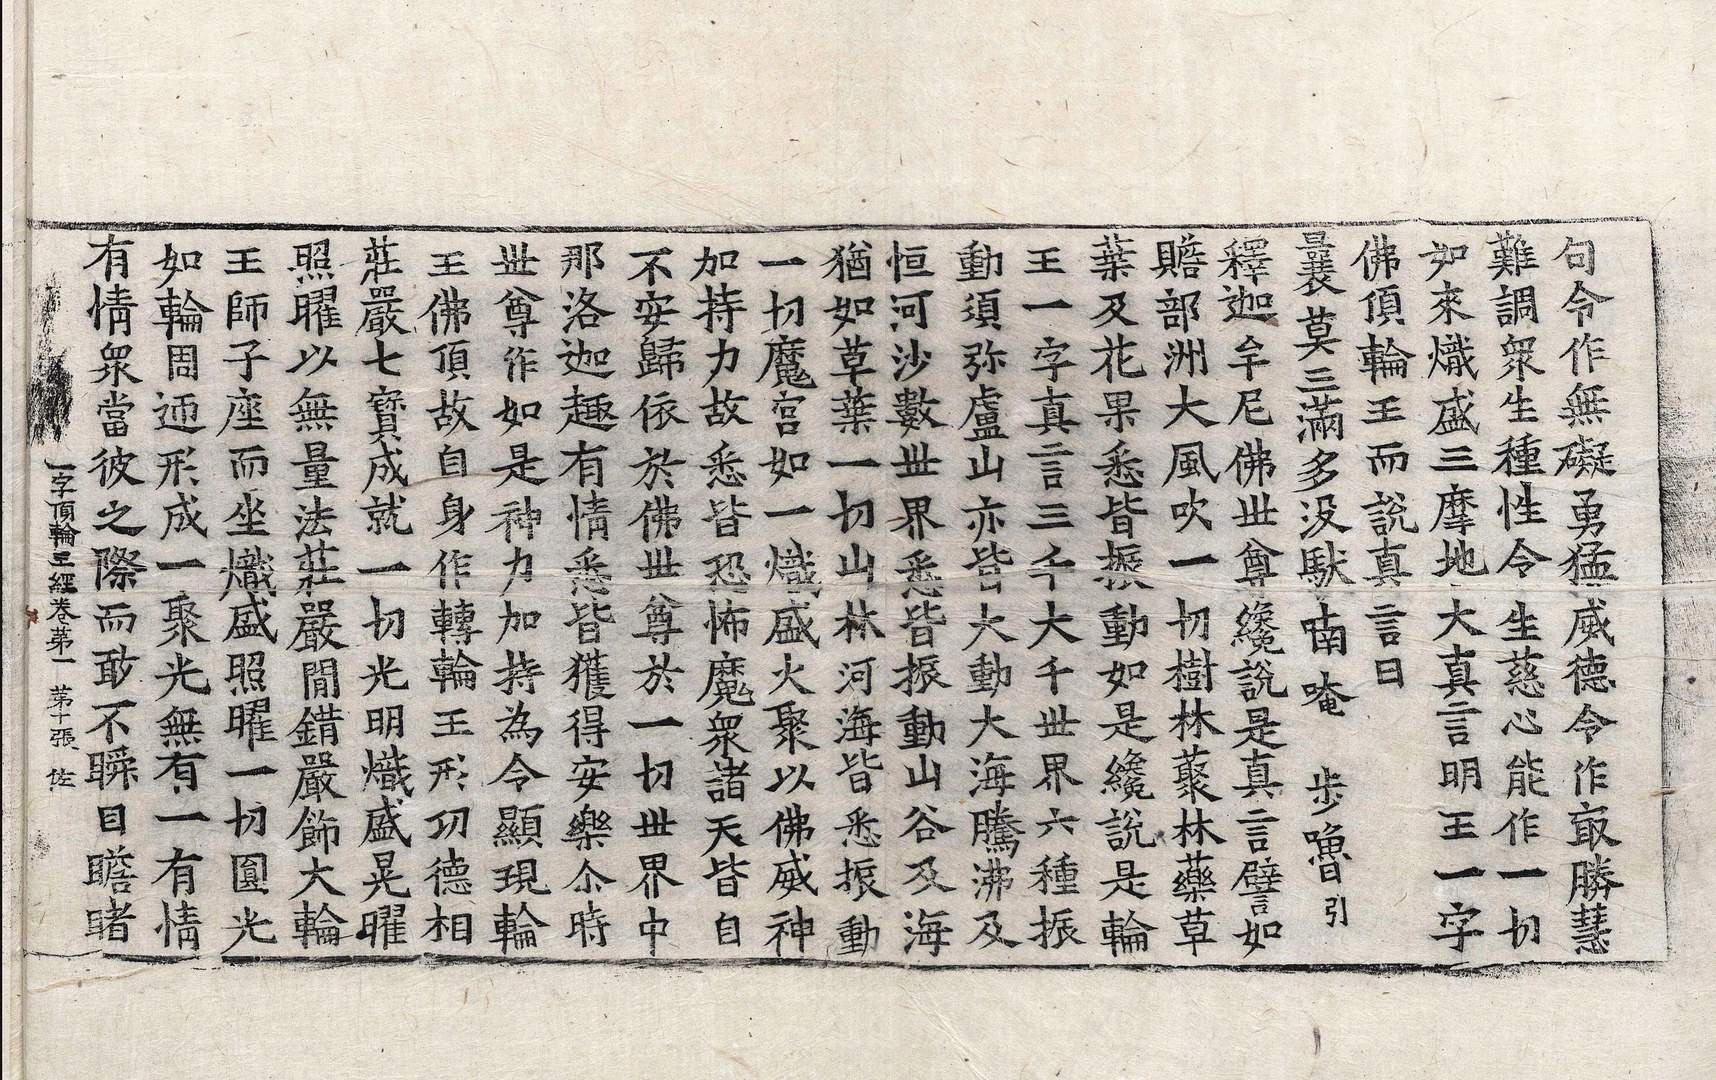 句令作無礙勇猛威德令作㝡勝慧
難調衆生種性令生慈心能作一切
如來熾盛三摩地大真言明王一字
佛頂輪王而說真言曰
曩莫三滿多没馱喃唵 步嚕引
釋迦牟尼佛丗尊纔說是真言譬如
贍部洲大風吹一切樹林藂林藥草
葉及花果悉皆振動如是纔說是輪
王一字真言三千大千丗界六種振
動須弥盧山亦皆大動大海騰沸及
恒河沙數丗界悉皆振動山谷及海
猶如草葉一切山林河海皆悉振動
一切魔宮如一熾盛火聚以佛威神
加持力故悉皆恐怖魔衆諸天皆自
不安歸依於佛丗尊於一切丗界中
那洛迦趣有情悉皆獲得安樂尒時
丗尊作如是神力加持為令顯現輪
王佛頂故自身作轉輪王形功德相
莊嚴七寶成就一切光明熾盛晃曜
照曜以無量法莊嚴間錯嚴飾大輪
王師子座而坐熾盛照曜一切圓光
如輪周迊形成一聚光無有一有情
有情衆當彼之際而敢不瞬目瞻睹
一字頂輪王經卷第一 第十張 佐